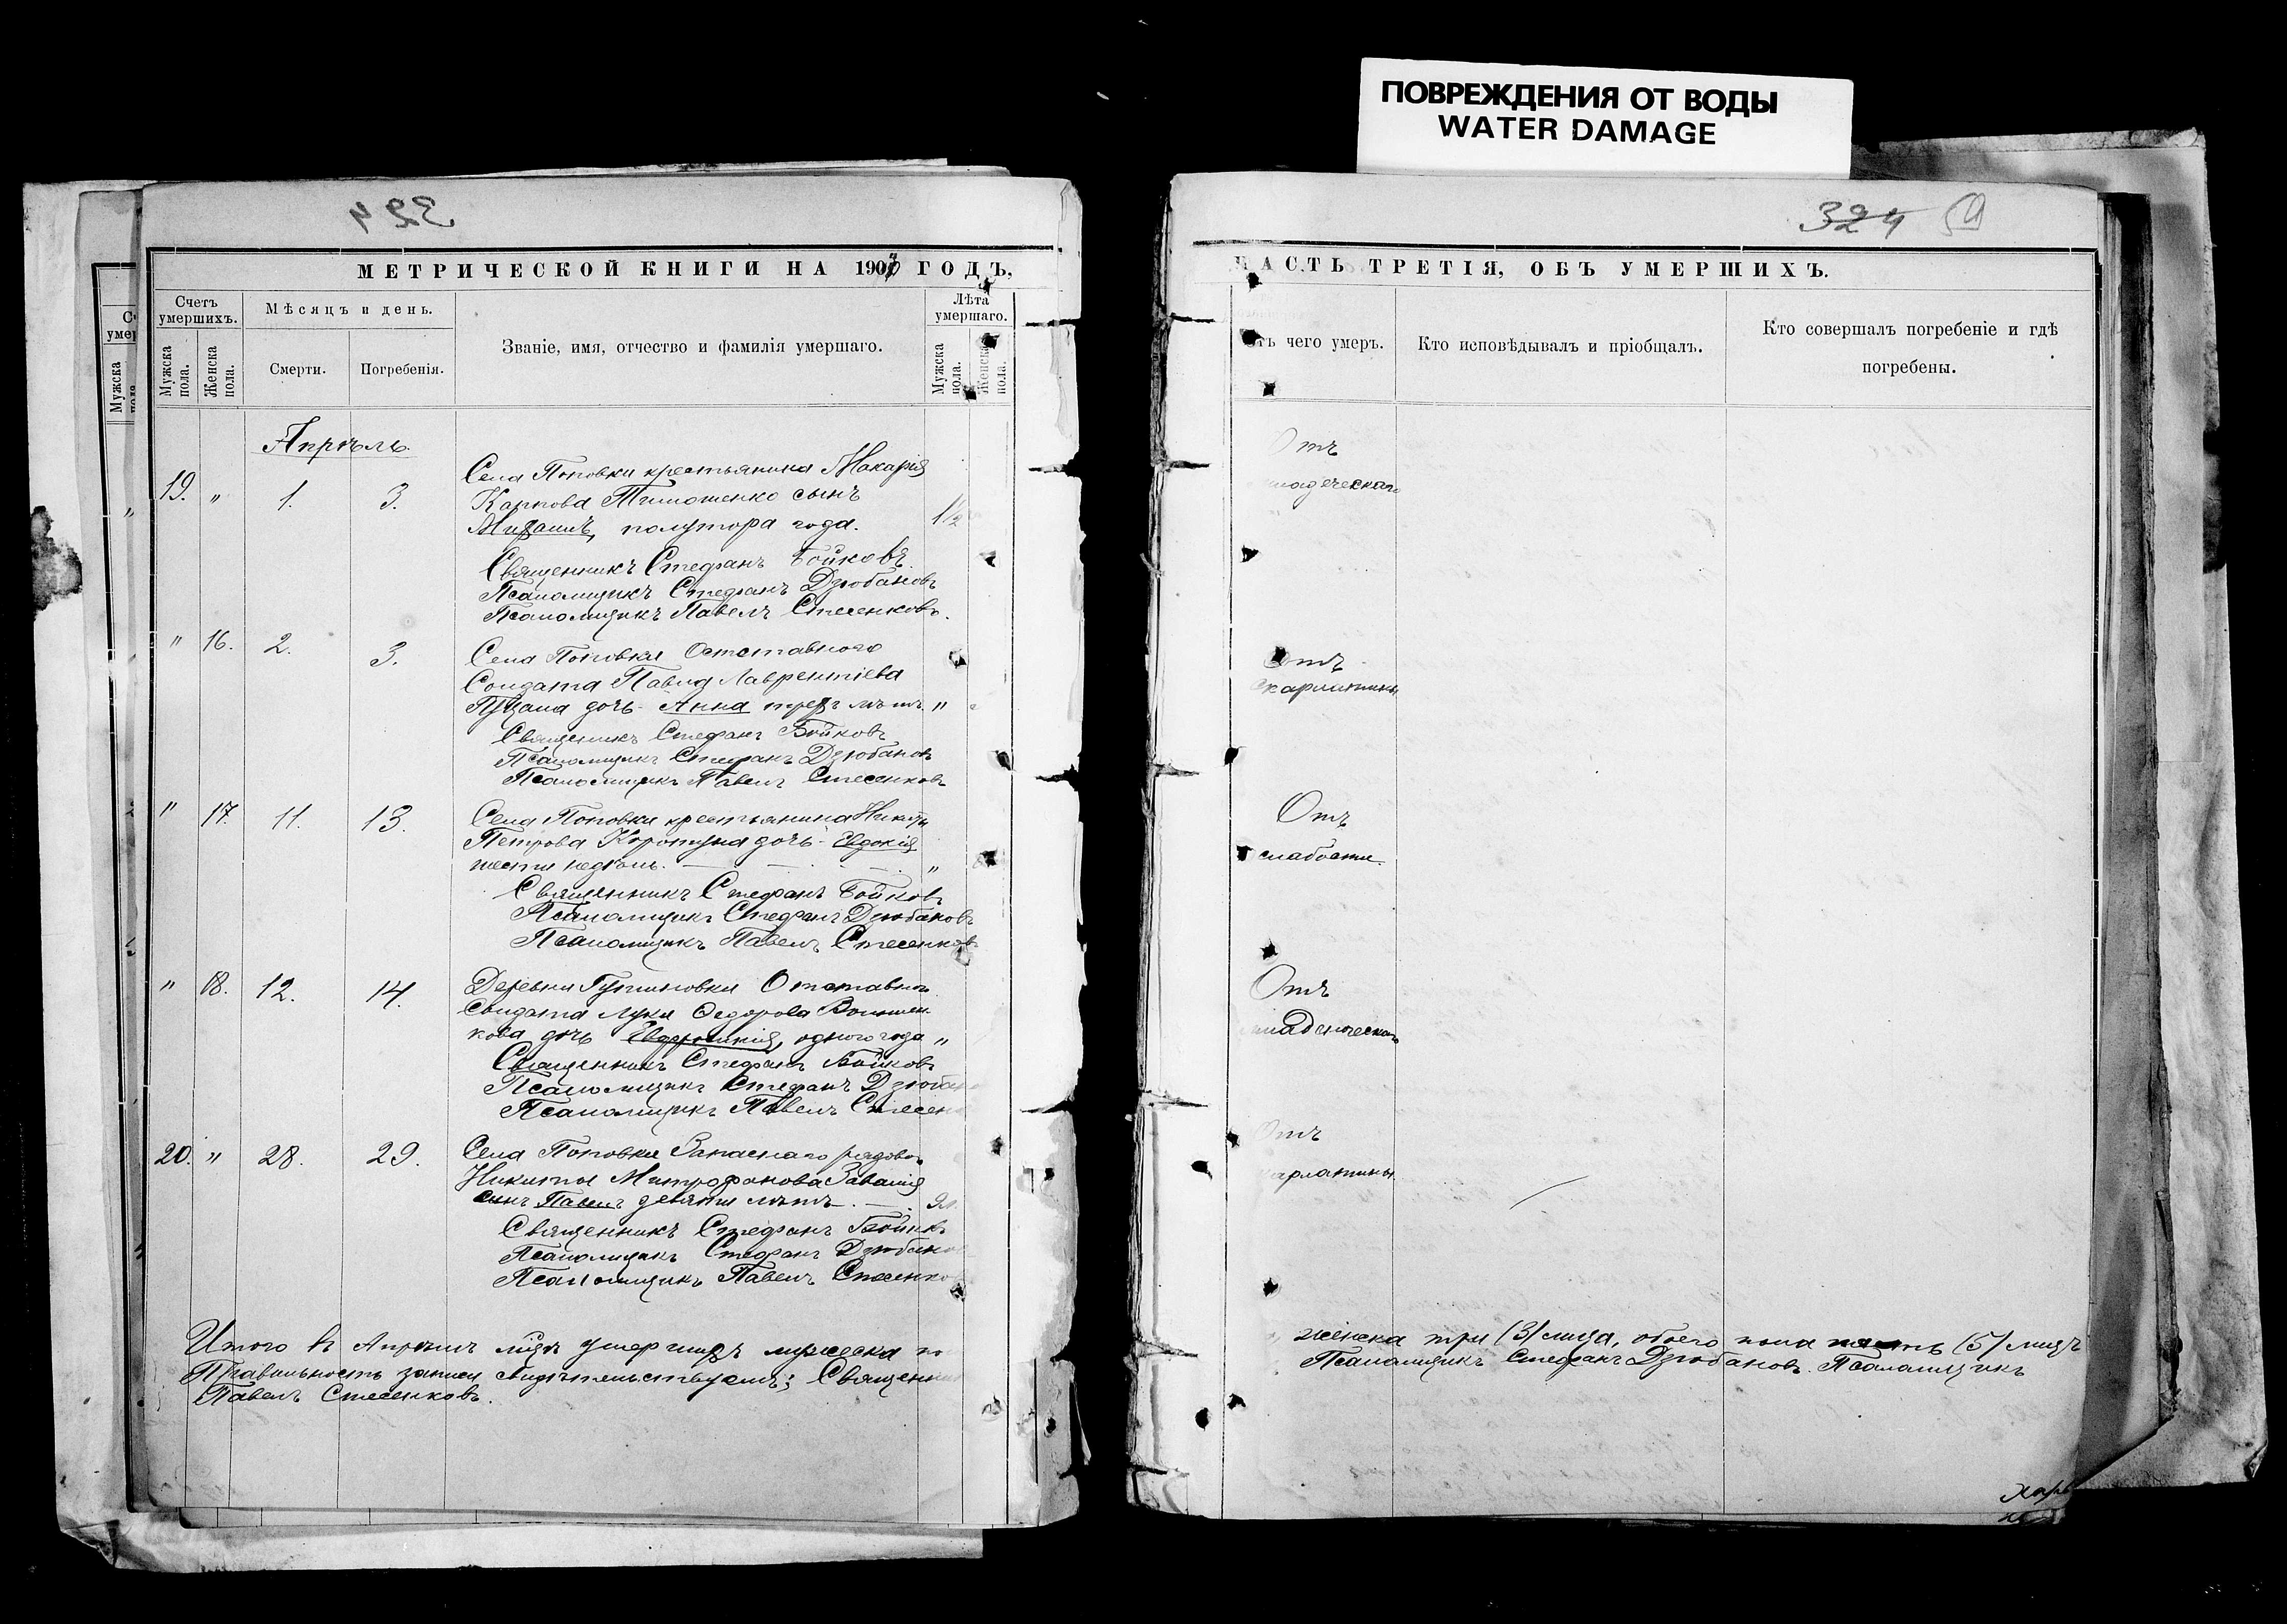 ПОВРЕЖДЕНИЯ ОТ ВОДЫ
WATER DAMAGE
МЕТРИЧЕСКОЙ КНИГИ НА 190 ГОДЪ,
Счетъ умершихъ.
Мужска пола.
Женска пола.
Мѣсяцъ и день.
Смерти.
Погребенія.
Званіе, имя, отчество и фамилія умершаго.
Лѣта умершаго.
Мужска пола.
Женска пола.
Апрѣль.
19. " 1. 3.
Села Поповки крестьянина Макарія
Карпова Тимошенко сынъ
Михаилъ, полутора года. 1 1/2
Священникъ Стефанъ Бойковъ.
Псаломщикъ Стефанъ Дзюбановъ
Псаломщикъ Павелъ Стесенковъ.
" 16. 2. 3.
Села Поповки Отставного
Солдата Павла Лаврентіева
дочь Анна трехъ лѣтъ "
Священникъ Стефанъ Бойковъ
Псаломщикъ Стефанъ Дзюбановъ
Псаломщикъ Павелъ Стесенковъ
" 17. 11. 13.
Села Поповки крестьянина Никиты
Петрова дочь Евдокія
шести недѣль. "
Священникъ Стефанъ Бойковъ
Псаломщикъ Стефанъ Дзюбановъ
Псаломщикъ Павелъ Стесенковъ
" 18. 12. 14.
Деревни Отставно
Солдата Луки Федорова
кова дочь одного года "
Священникъ Стефанъ Бойковъ
Псаломщикъ Стефанъ Дзюбан
Псаломщикъ Павелъ Стесен
20. " 28. 29.
Села Поповки Запаснаго рядово
Никиты Митрофанова
сынъ Павелъ девяти лѣтъ 9 л.
Священникъ Стефанъ Бойковъ
Псаломщикъ Стефанъ Дзюбанов
Псаломщикъ Павелъ Стесенко
Итого въ Апрѣлѣ умершихъ мужеска по
Правильность записи свидѣтельствуемъ: Священни
Павелъ Стесенковъ.
324
ЧАСТЬ ТРЕТІЯ, ОБЪ УМЕРШИХЪ.
Отъ чего умеръ.
Кто исповѣдывалъ и пріобщалъ.
Кто совершалъ погребеніе и гдѣ погребены.
Отъ
Отъ
скарлатины
Отъ
слабости.
Отъ
младенческаго
Отъ
карлатины
женска три (3) лица, обоего пола пять (5) лицъ
Псаломщикъ Стефанъ Дзюбановъ. Псаломщикъ